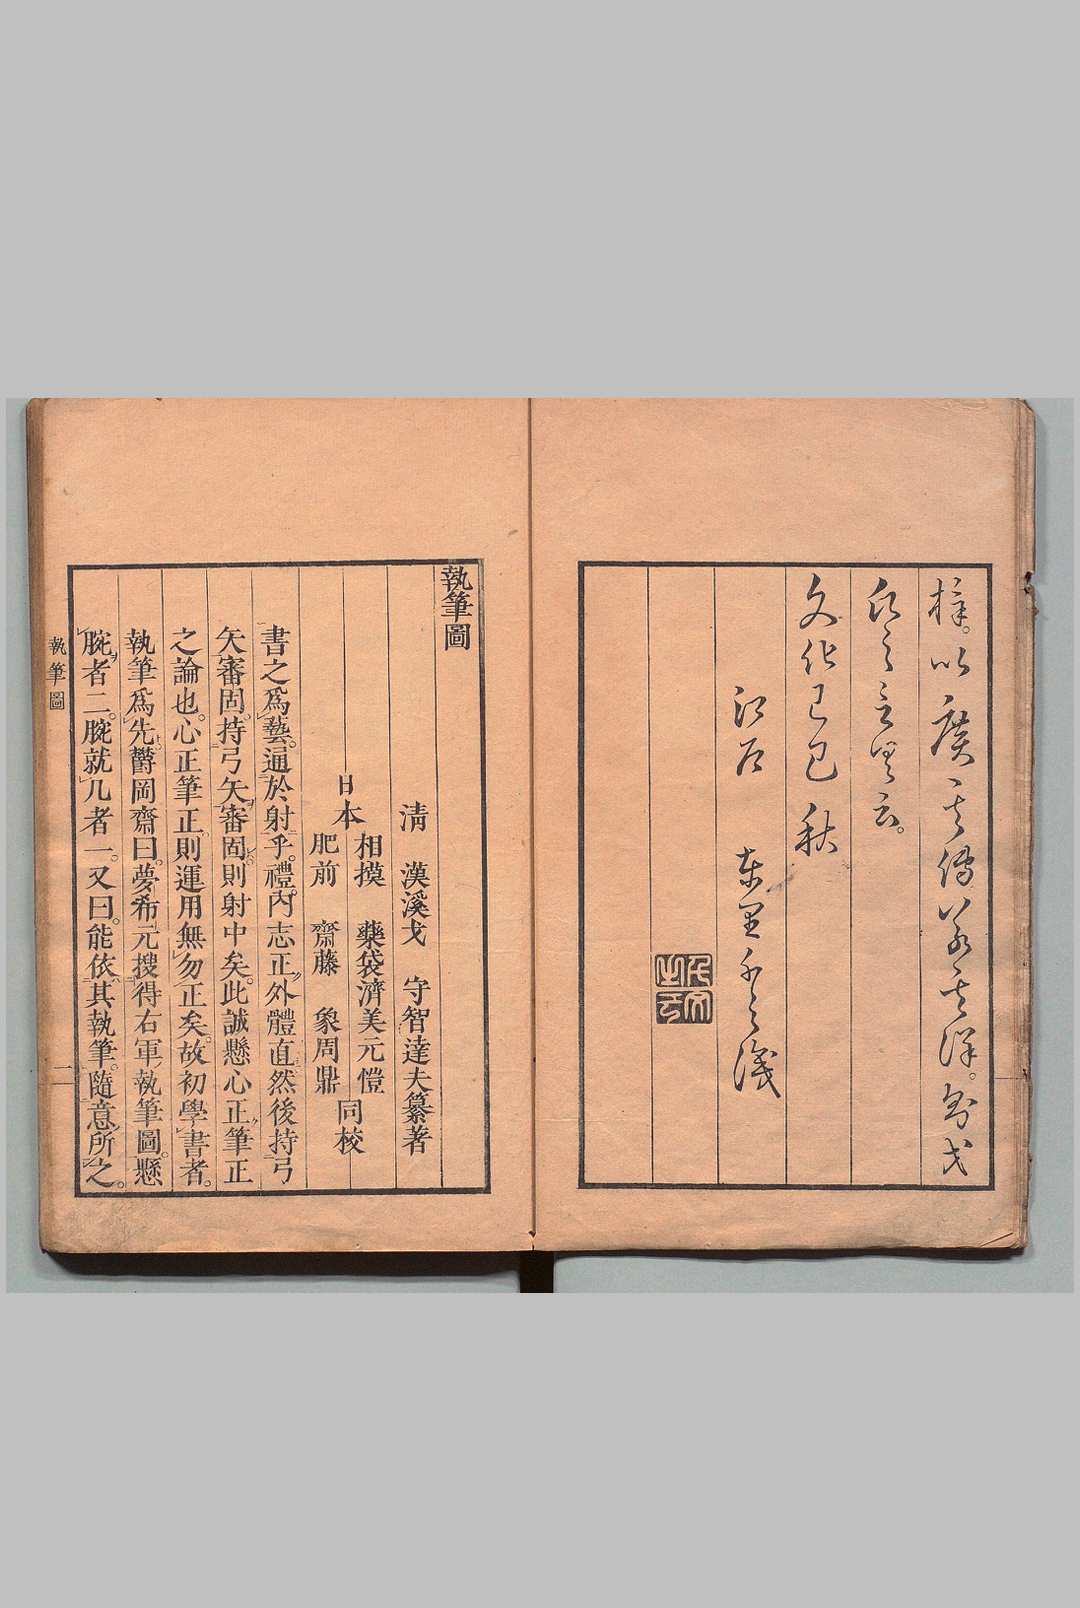 梓。以廣其傳。若其詳。翁戈
氏之言盡云。
文化己巳秋
江戶
執筆圖
清 漢溪戈 守智達夫纂著
日本
相摸 藥袋濟美元愷
肥前 齋藤 象周鼎
同校
書之爲藝。通於射乎。禮。內志正外體直然後持弓
矢審固。持弓矢審固。則射中矣。此誠懸心正筆正
之論也。心正筆正。則運用無勿正矣。故初學書者。
執筆爲先。欝岡齋曰。夢希元搜得右軍執筆圖。懸
腕者二。腕就几者一。又曰。能依其執筆。隨意所之。
執筆圖
二